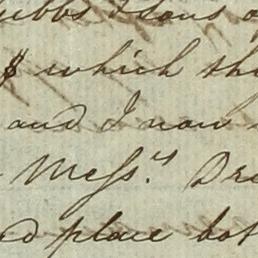 ibbs & Sons o
$ which th
and I now
Messrs Dr
ed place bot